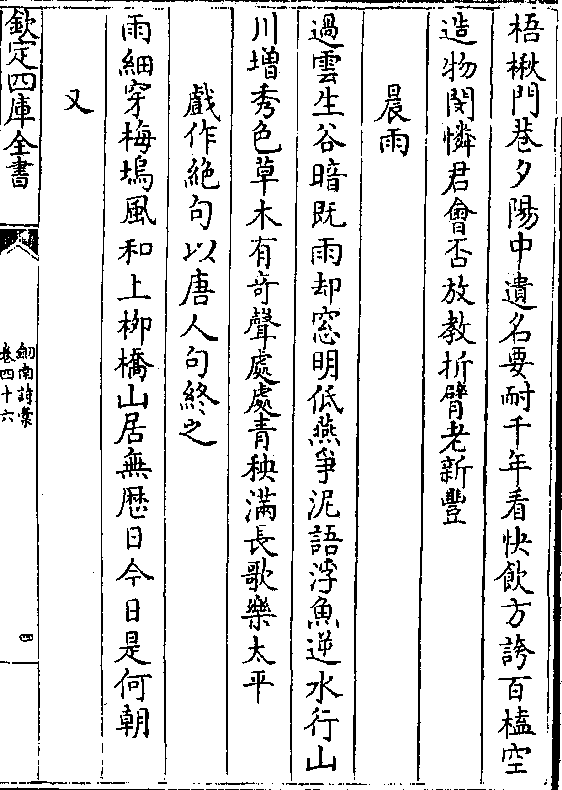 梧楸門巷夕陽中遺名要耐千年看快飲方誇百榼空
造物閔憐君會否放教折臂老新豐
晨雨
過雲生谷暗既雨却窓明低燕爭泥語浮魚逆水行山
川增秀色草木有竒聲處處青秧滿長歌樂太平
戲作絶句以唐人句終之
雨細穿梅塢風和上栁橋山居無厯日今日是何朝
又
欽定四庫全書
劍南詩槀
卷四十六
四